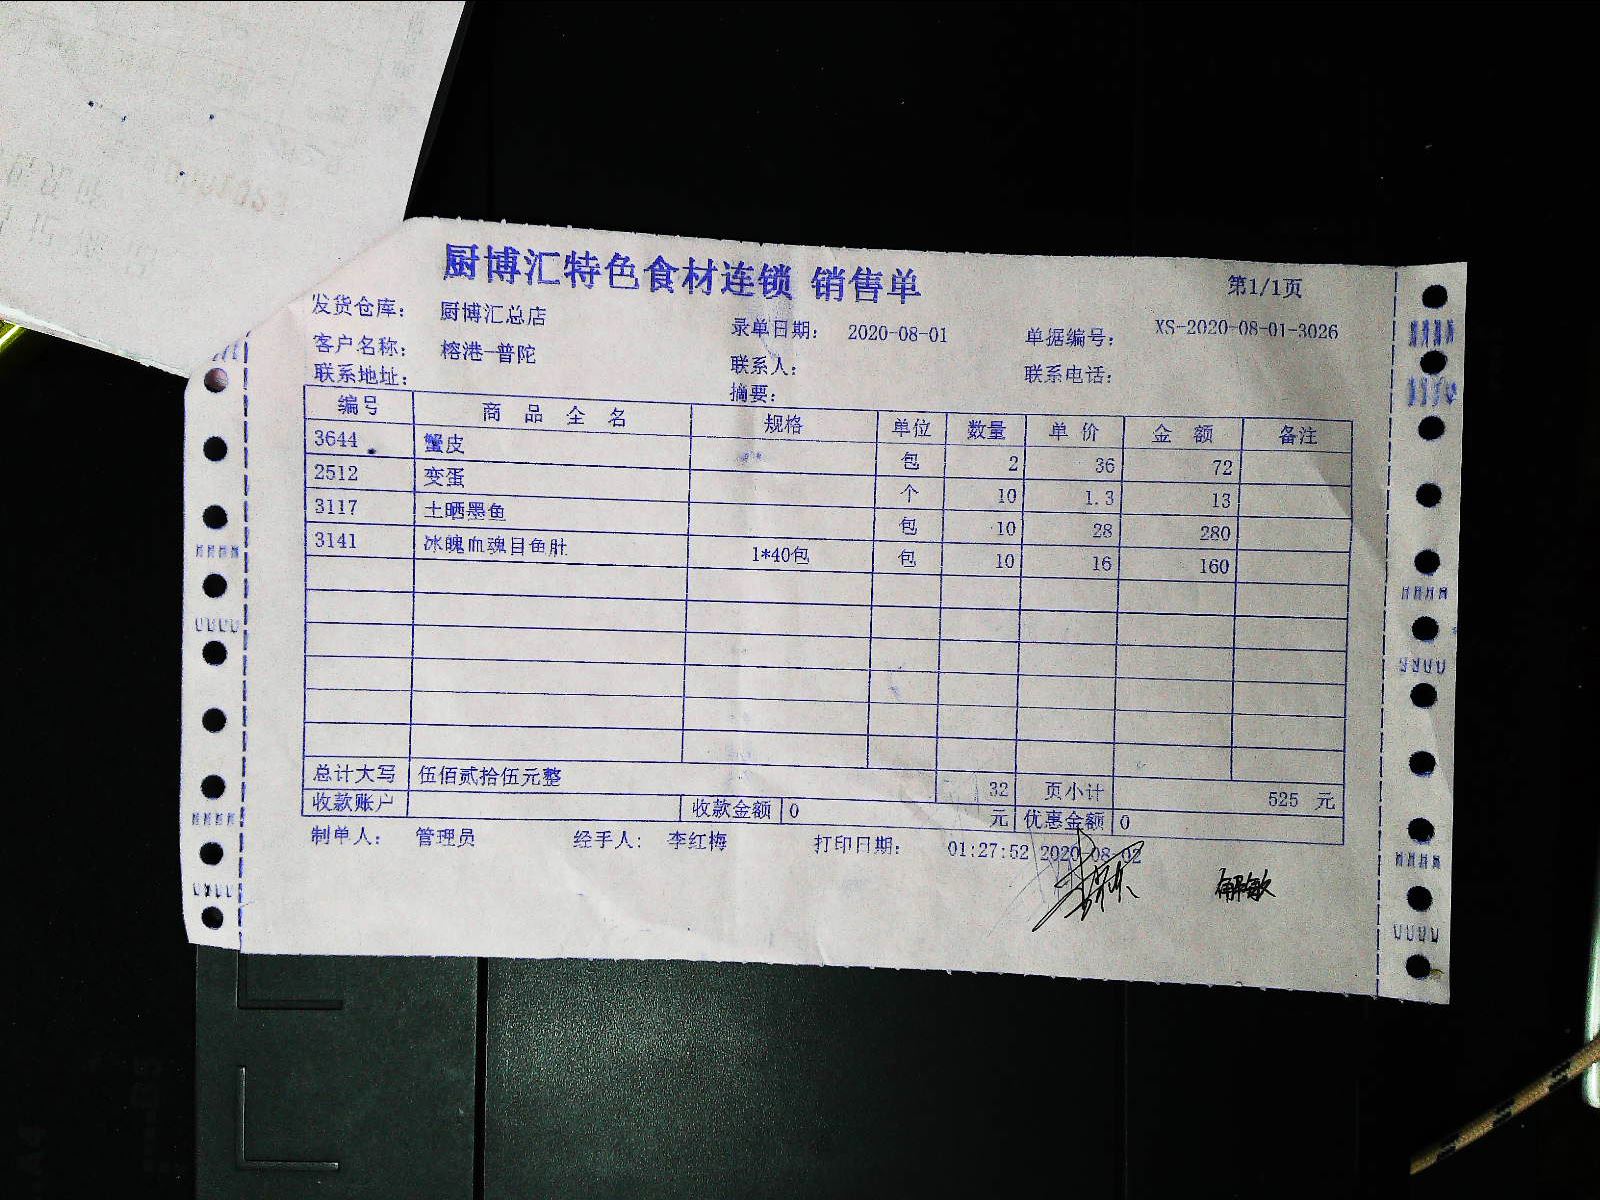 厨博汇特色食材连锁 销售单 第1/1页
发货仓库： 厨博汇总店 录单日期： 2020-08-01 单据编号： XS-2020-08-01-3026
客户名称： 榕港-普陀 联系人： 联系电话：
联系地址： 摘要：
编号 商品全名 规格 单位 数量 单价 金额 备注
3644 蟹皮 包 2 36 72
2512 变蛋 个 10 1.3 13
3117 土晒墨鱼 包 10 28 280
3141 冰魄血魂目鱼肚 1*40包 包 10 16 160
总计大写 伍佰贰拾伍元整 32 页小计 525 元
收款账户 收款金额 0 元 优惠金额 0
制单人： 管理员 经手人： 李红梅 打印日期： 01:27:52 2020-08-02
解敏